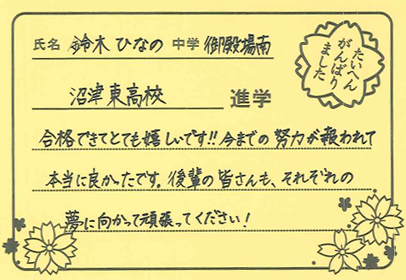 氏名 鈴木 ひなの 中学 御殿場南
たいへん
がんばり
ました
沼津東高校 進学
合格できてとても嬉しいです!!今までの努力が報われて
本当に良かったです。後輩の皆さんも、それぞれの
夢に向かって頑張ってください!